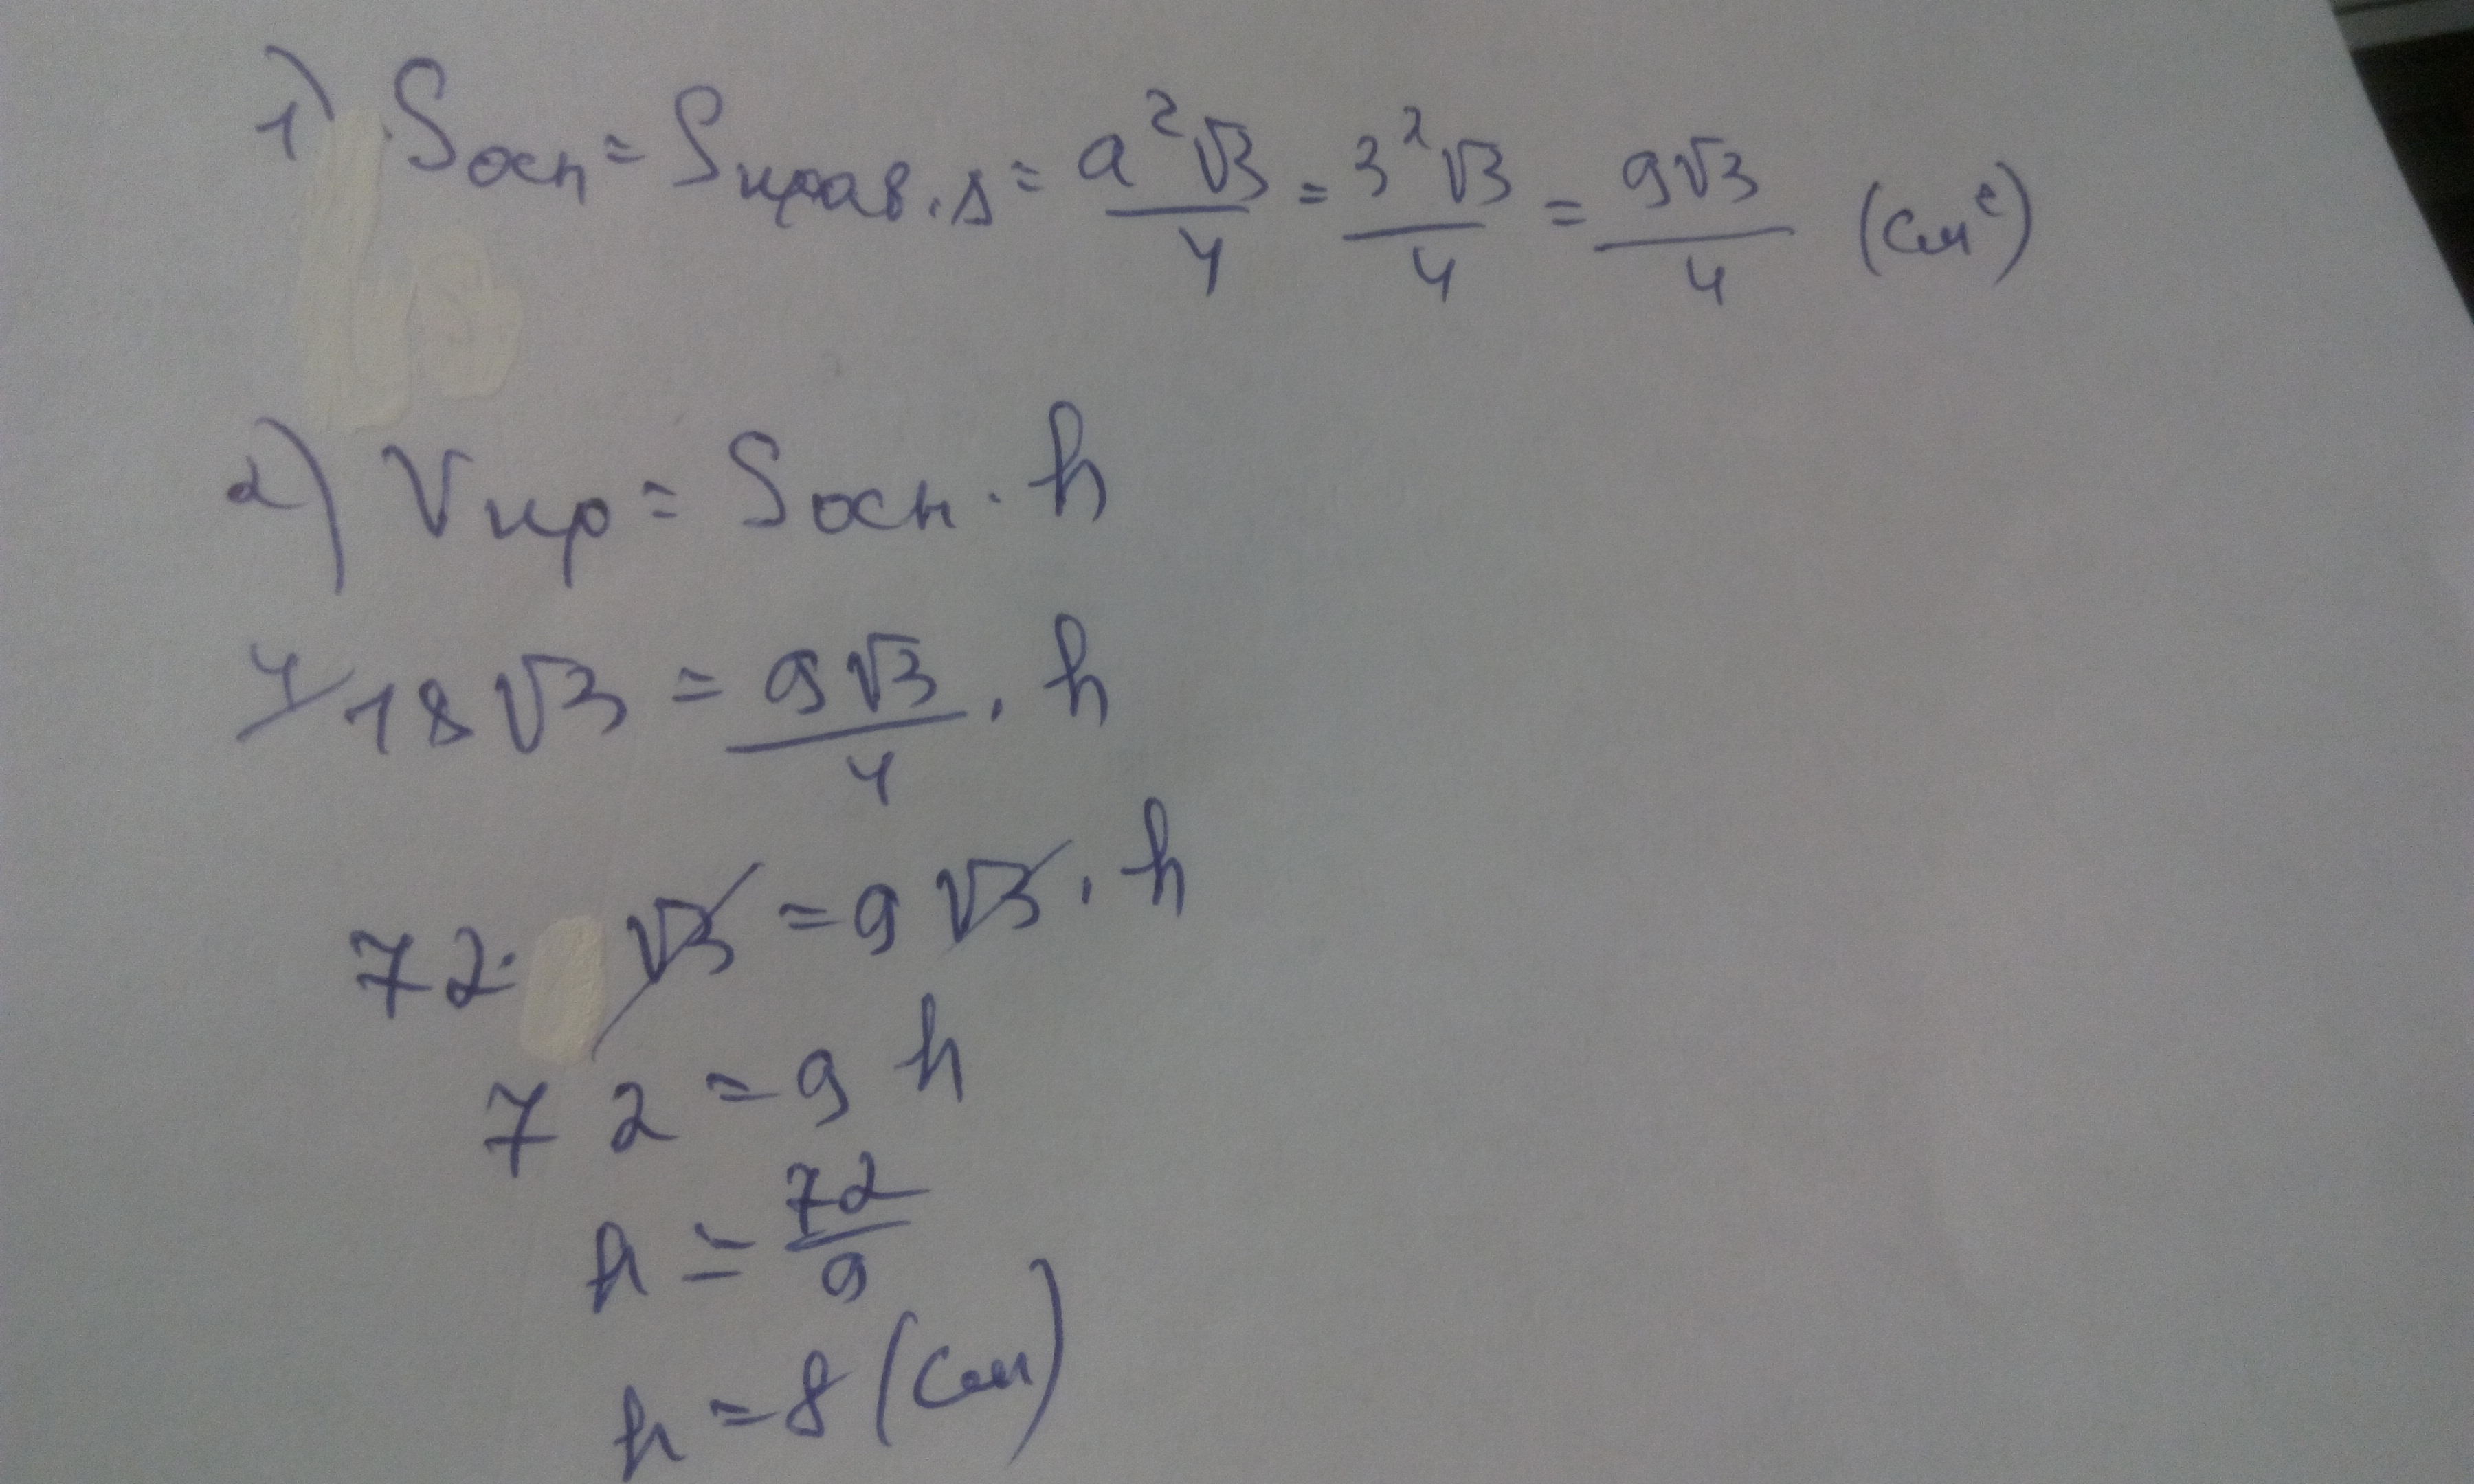 1) Sосн = Sправ.Δ = a²√3/4 = 3²√3/4 = 9√3/4 (см²)
2) Vпр = Sосн · h
4/ 18√3 = 9√3/4 · h
72 · √3 = 9√3 · h
72 = 9h
h = 72/9
h = 8 (см)